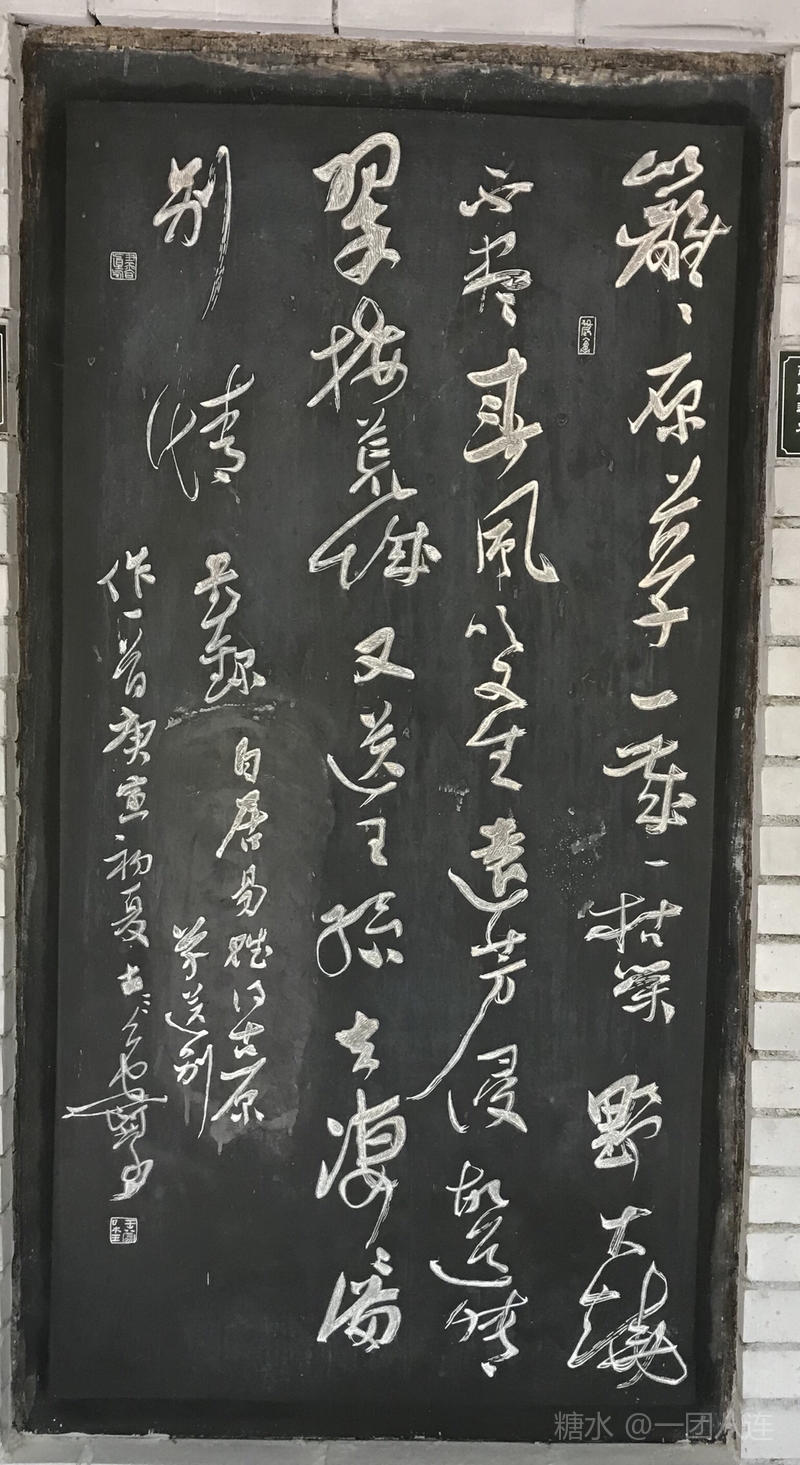 離〻原草一歲一枯榮野火燒
不盡春風吹又生遠芳侵古道晴
翠接荒城又送王孫去淒〻滿
別情
錄白居易賦得古原
草送別
作一首庚寅初夏
糖水 @一团